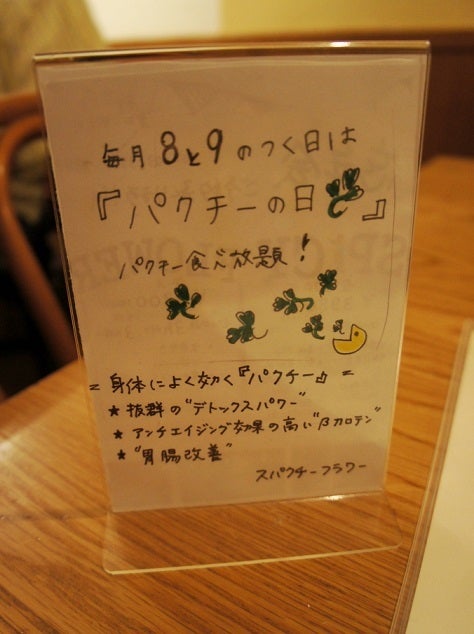 毎月8と9のつく日は
『パクチーの日』
パクチー食べ放題！
= 身体によく効く『パクチー』 =
★ 抜群の"デトックスパワー"
★ アンチエイジング効果の高い"βカロテン"
★ "胃腸改善"
スパクチーフラワー